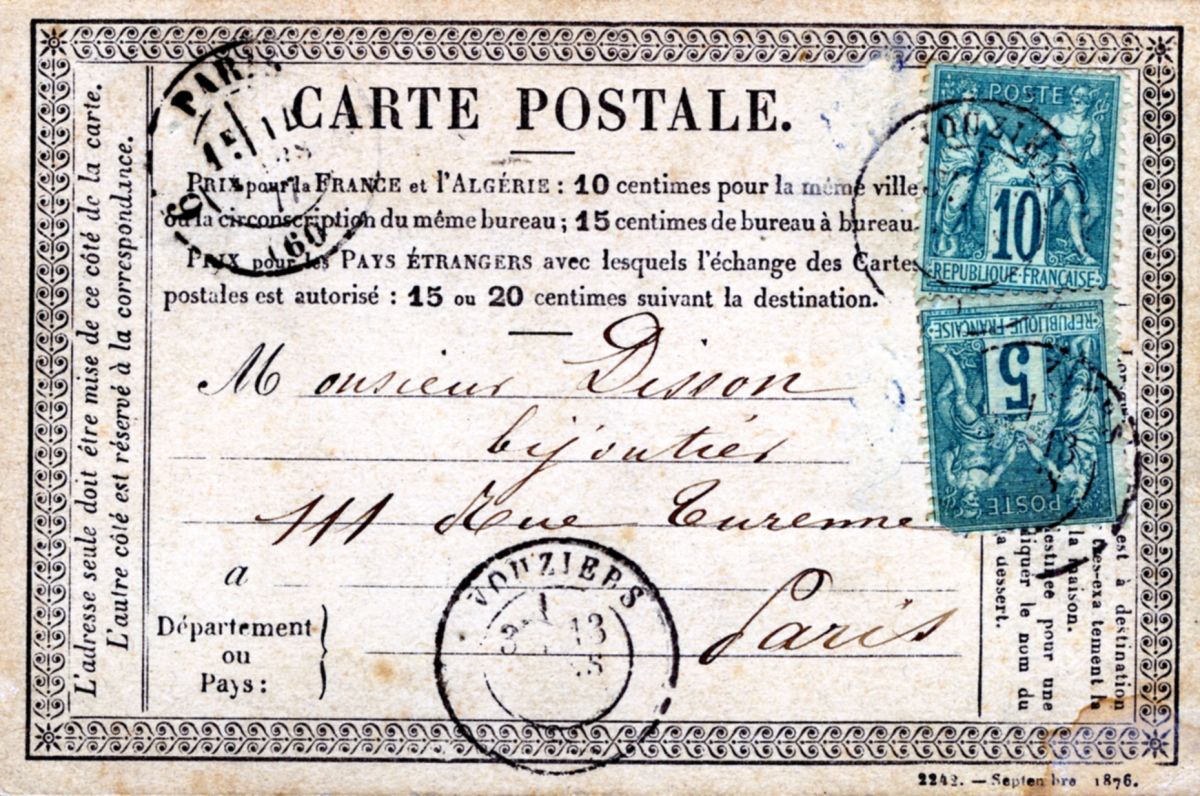 CARTE POSTALE.
PRIX pour la FRANCE et l'ALGÉRIE : 10 centimes pour la même ville
ou la circonscription du même bureau ; 15 centimes de bureau à bureau.
PRIX pour les PAYS ÉTRANGERS avec lesquels l'échange des Cartes
postales est autorisé : 15 ou 20 centimes suivant la destination.
Monsieur Disson
bijoutier
111 Rue Turenne
a
Paris
Département
ou
Pays :
L'adresse seule doit être mise de ce côté de la carte.
L'autre côté est réservé à la correspondance.
PARIS
15
(60)
POSTE
10
REPUBLIQUE FRANÇAISE
REPUBLIQUE FRANÇAISE
5
POSTE
VOUZIERS
13
VOUZIERS
13
est à destination
très-exactement la
la maison.
destinée pour une
indiquer le nom du
la dessert.
2242. — Septembre 1876.